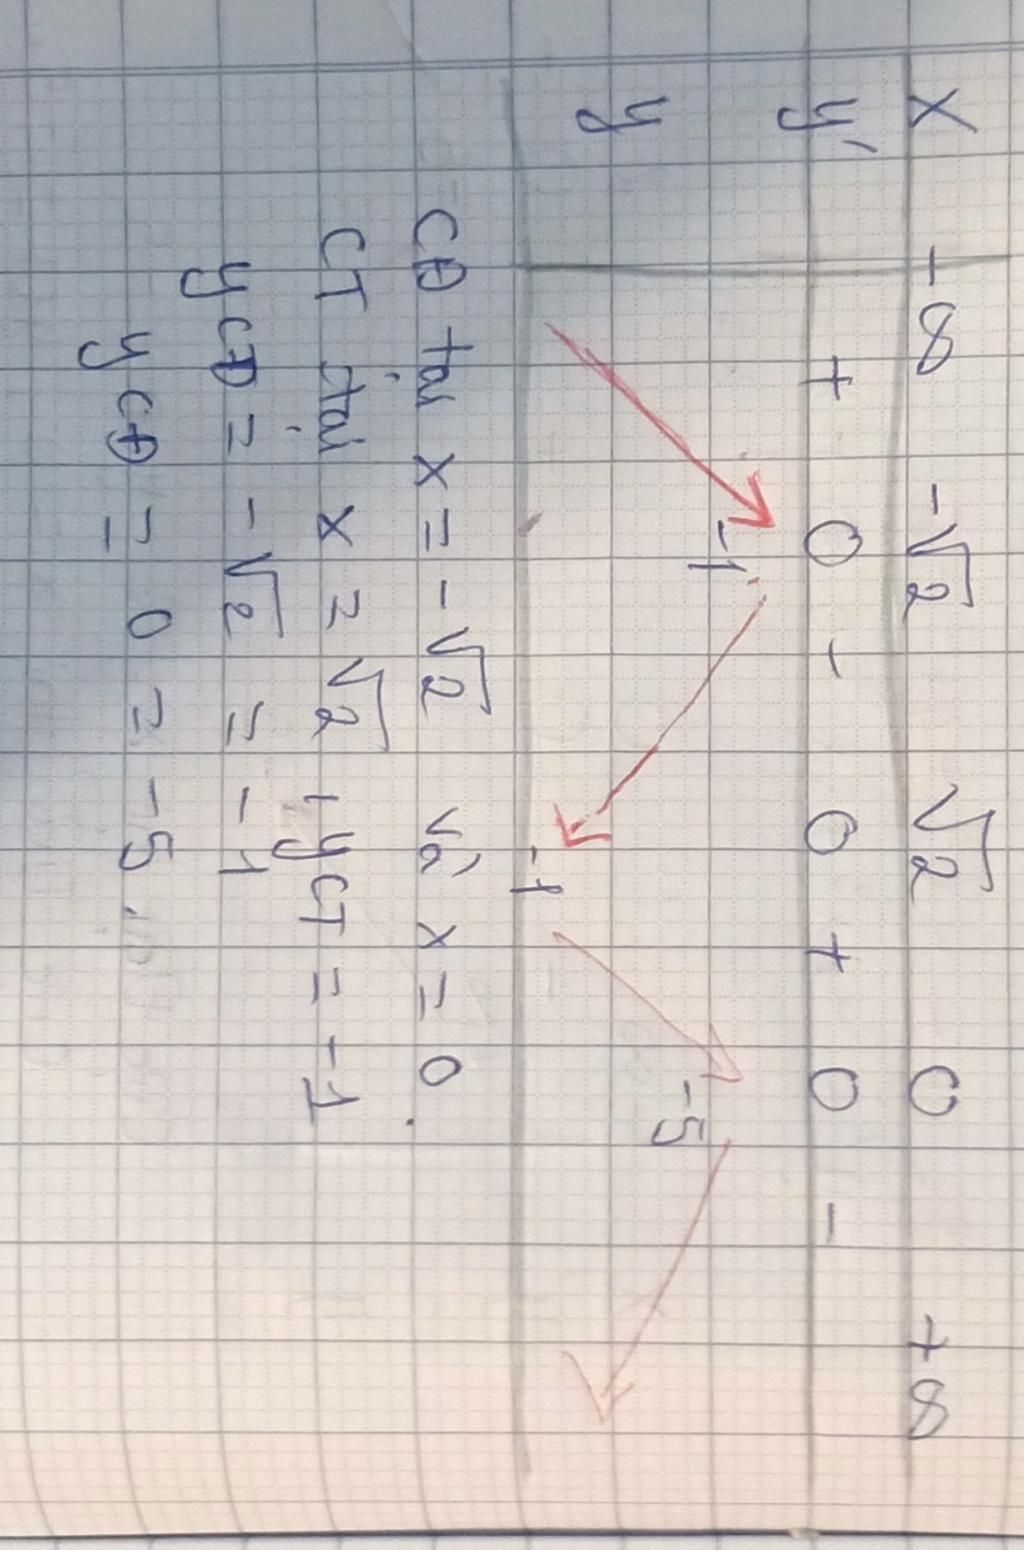 x -∞ -√2 √2 0 +∞
y' + 0 - 0 + 0 -
y -1 -1 -5
CĐ tại x = -√2 và x = 0
CT tại x = √2, yCT = -1
yCĐ = -√2 = -1
yCĐ = 0 = -5